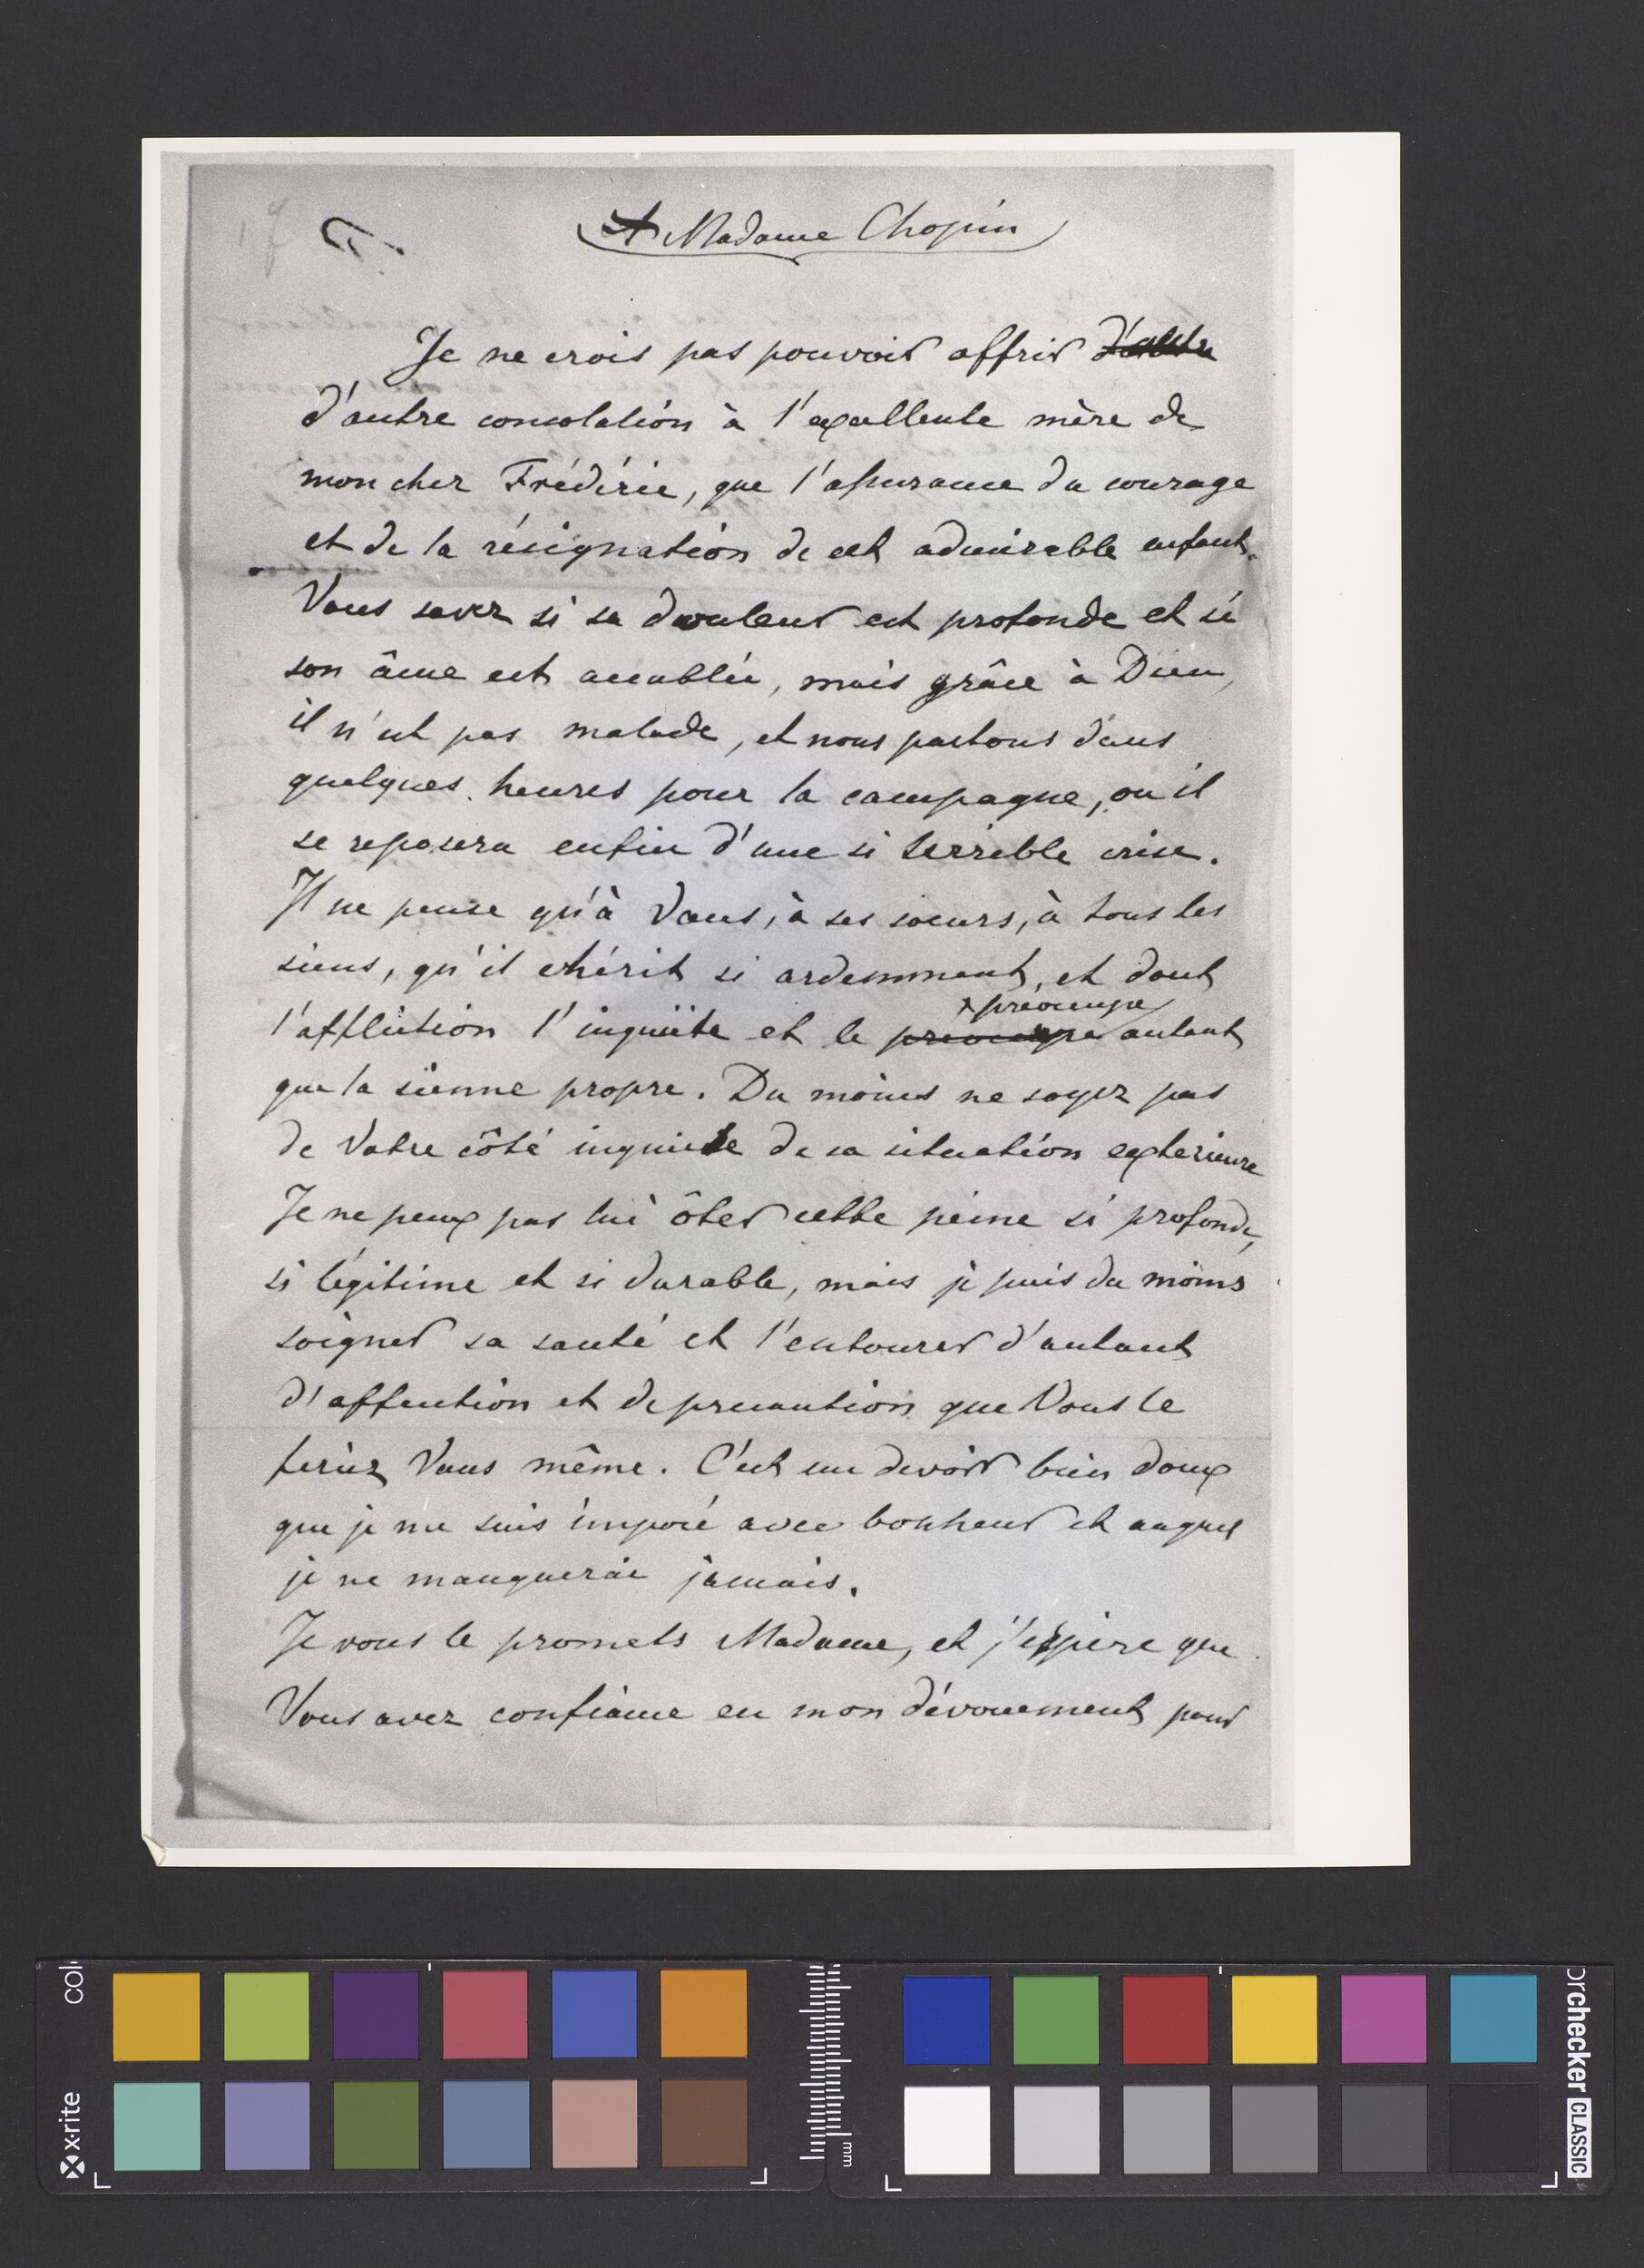 A Madame Chopin
Je ne crois pas pouvoir offrir d'autre
d'autre consolation à l'excellente mère de
mon cher Frédéric, que l'assurance du courage
et de la résignation de cet admirable enfant.
Vous savez si sa douleur est profonde et si
son âme est accablée, mais grâce à Dieu,
il n'est pas malade, et nous partons dans
quelques heures pour la campagne, ou il
se reposera enfin d'une si terrible crise.
Il ne pense qu'à Vous, à ses soeurs, à tous les
siens, qu'il chérit si ardemment, et dont
préoccupe
l'affliction l'inquiète et le preoccupe autant
que la sienne propre. Du moins ne soyez pas
de Votre côté inquiete de sa situation exterieure
Je ne peux pas lui ôter cette peine si profonde,
si légitime et si durable, mais je puis du moins
soigner sa santé et l'entourer d'autant
d'affection et de precaution que Vous le
feriez Vous même. C'est un devoir bien doux
que je me suis imposé avec bonheur et auquel
je ne manquerai jamais.
Je vous le promets Madame, et j'éspère que
Vous avez confiance en mon dévouement pour
x·rite
col
mm
orchecker CLASSIC